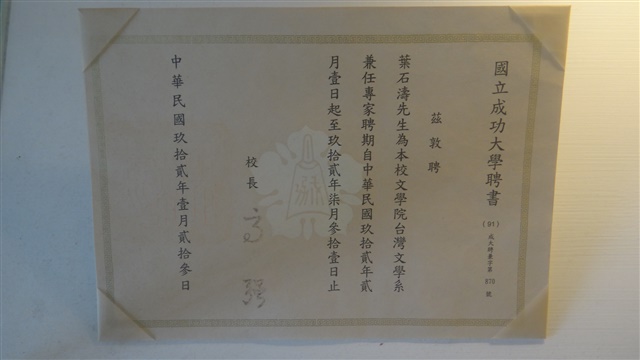 國立成功大學聘書
(91)成大聘兼字第876號
茲敦聘
葉石濤先生為本校文學院台灣文學系
兼任專家聘期自中華民國玖拾貳年貳
月壹日起至玖拾貳年柒月參拾壹日止
校長 高強
中華民國玖拾貳年壹月貳拾參日